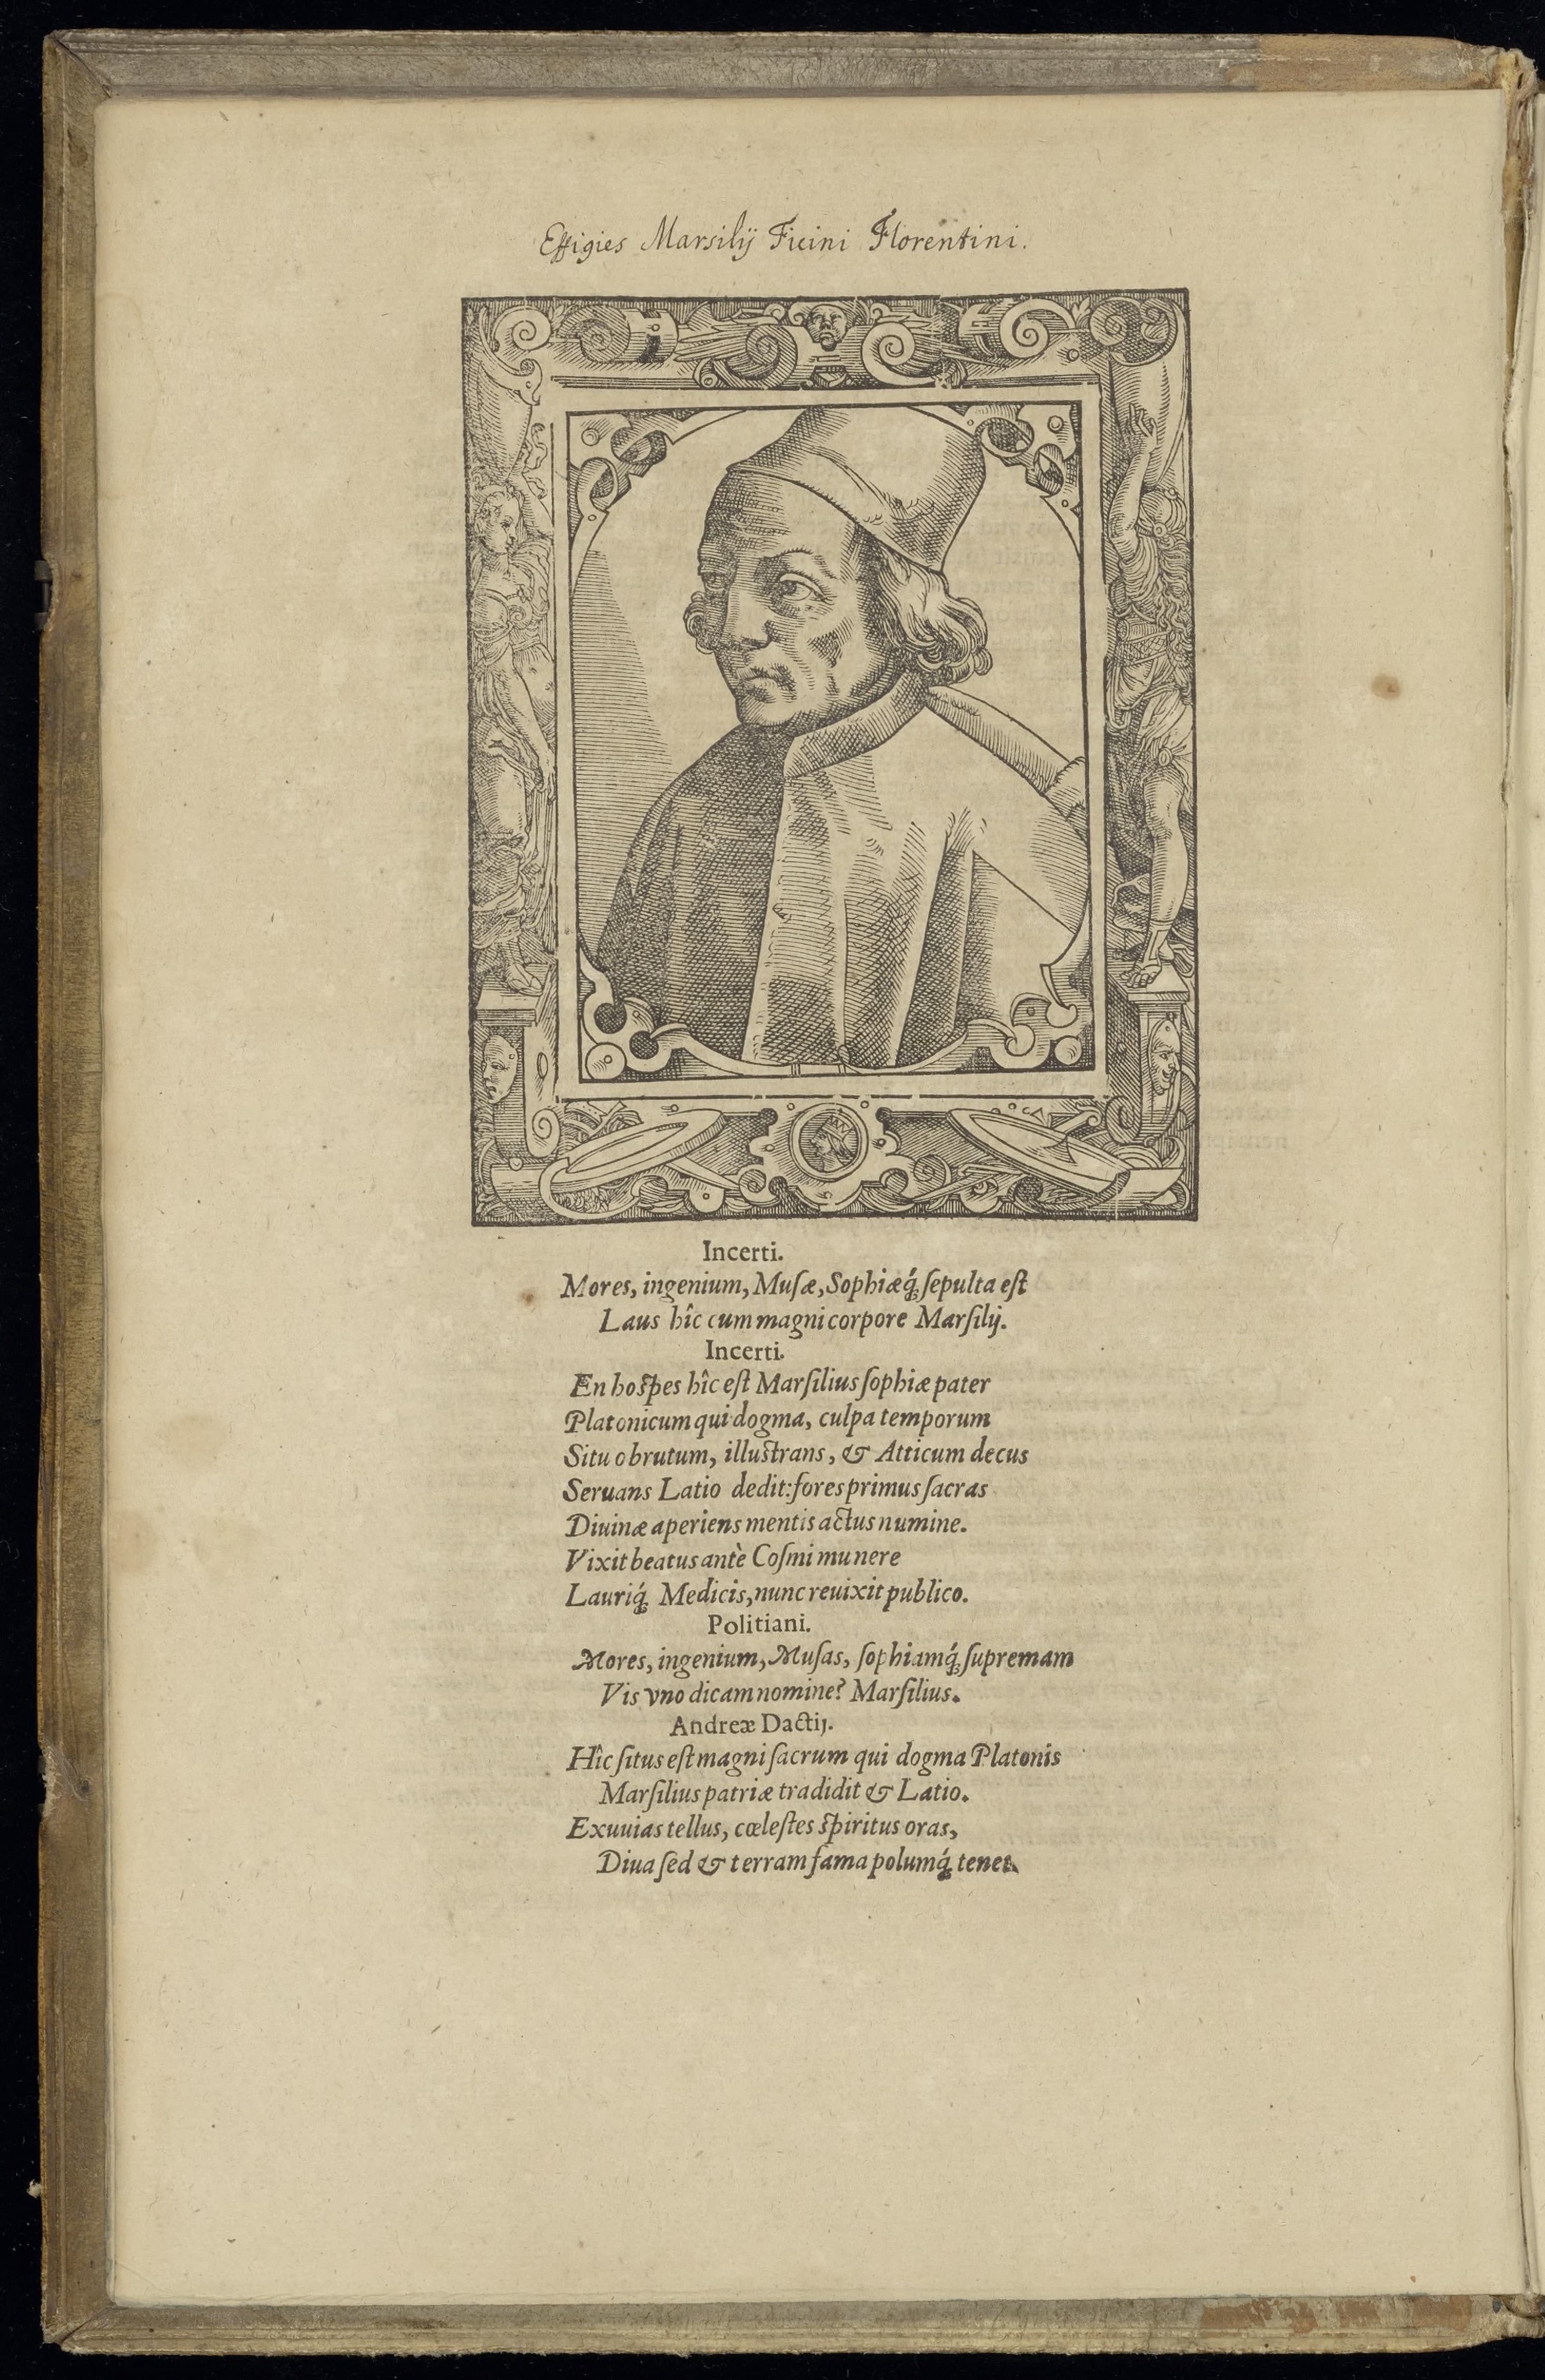 Effigies Marsilij Ficini Florentini.
Incerti.
Mores, ingenium, Musæ, Sophiæq́; ſepulta eſt
Laus hîc cum magni corpore Marſilij.
Incerti.
En hoſpes hîc eſt Marſilius ſophiæ pater
Platonicum qui dogma, culpa temporum
Situ obrutum, illuſtrans, & Atticum decus
Seruans Latio dedit: fores primus ſacras
Diuinæ aperiens mentis actus numine.
Vixit beatus antè Coſmi munere
Lauriq́; Medicis, nunc reuixit publico.
Politiani.
Mores, ingenium, Muſas, ſophiamq́; ſupremam
Vis vno dicam nomine? Marſilius.
Andreæ Dactij.
Hîc ſitus eſt magni ſacrum qui dogma Platonis
Marſilius patriæ tradidit & Latio.
Exuuias tellus, cœleſtes ſpiritus oras,
Diua ſed & terram fama polumq́; tenet.